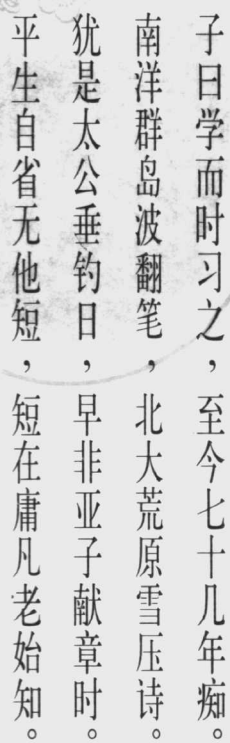 子曰学而时习之，至今七十几年痴。
南洋群岛波翻笔，北大荒原雪压诗。
犹是太公垂钓日，早非亚子献章时。
平生自省无他短，短在庸凡老始知。